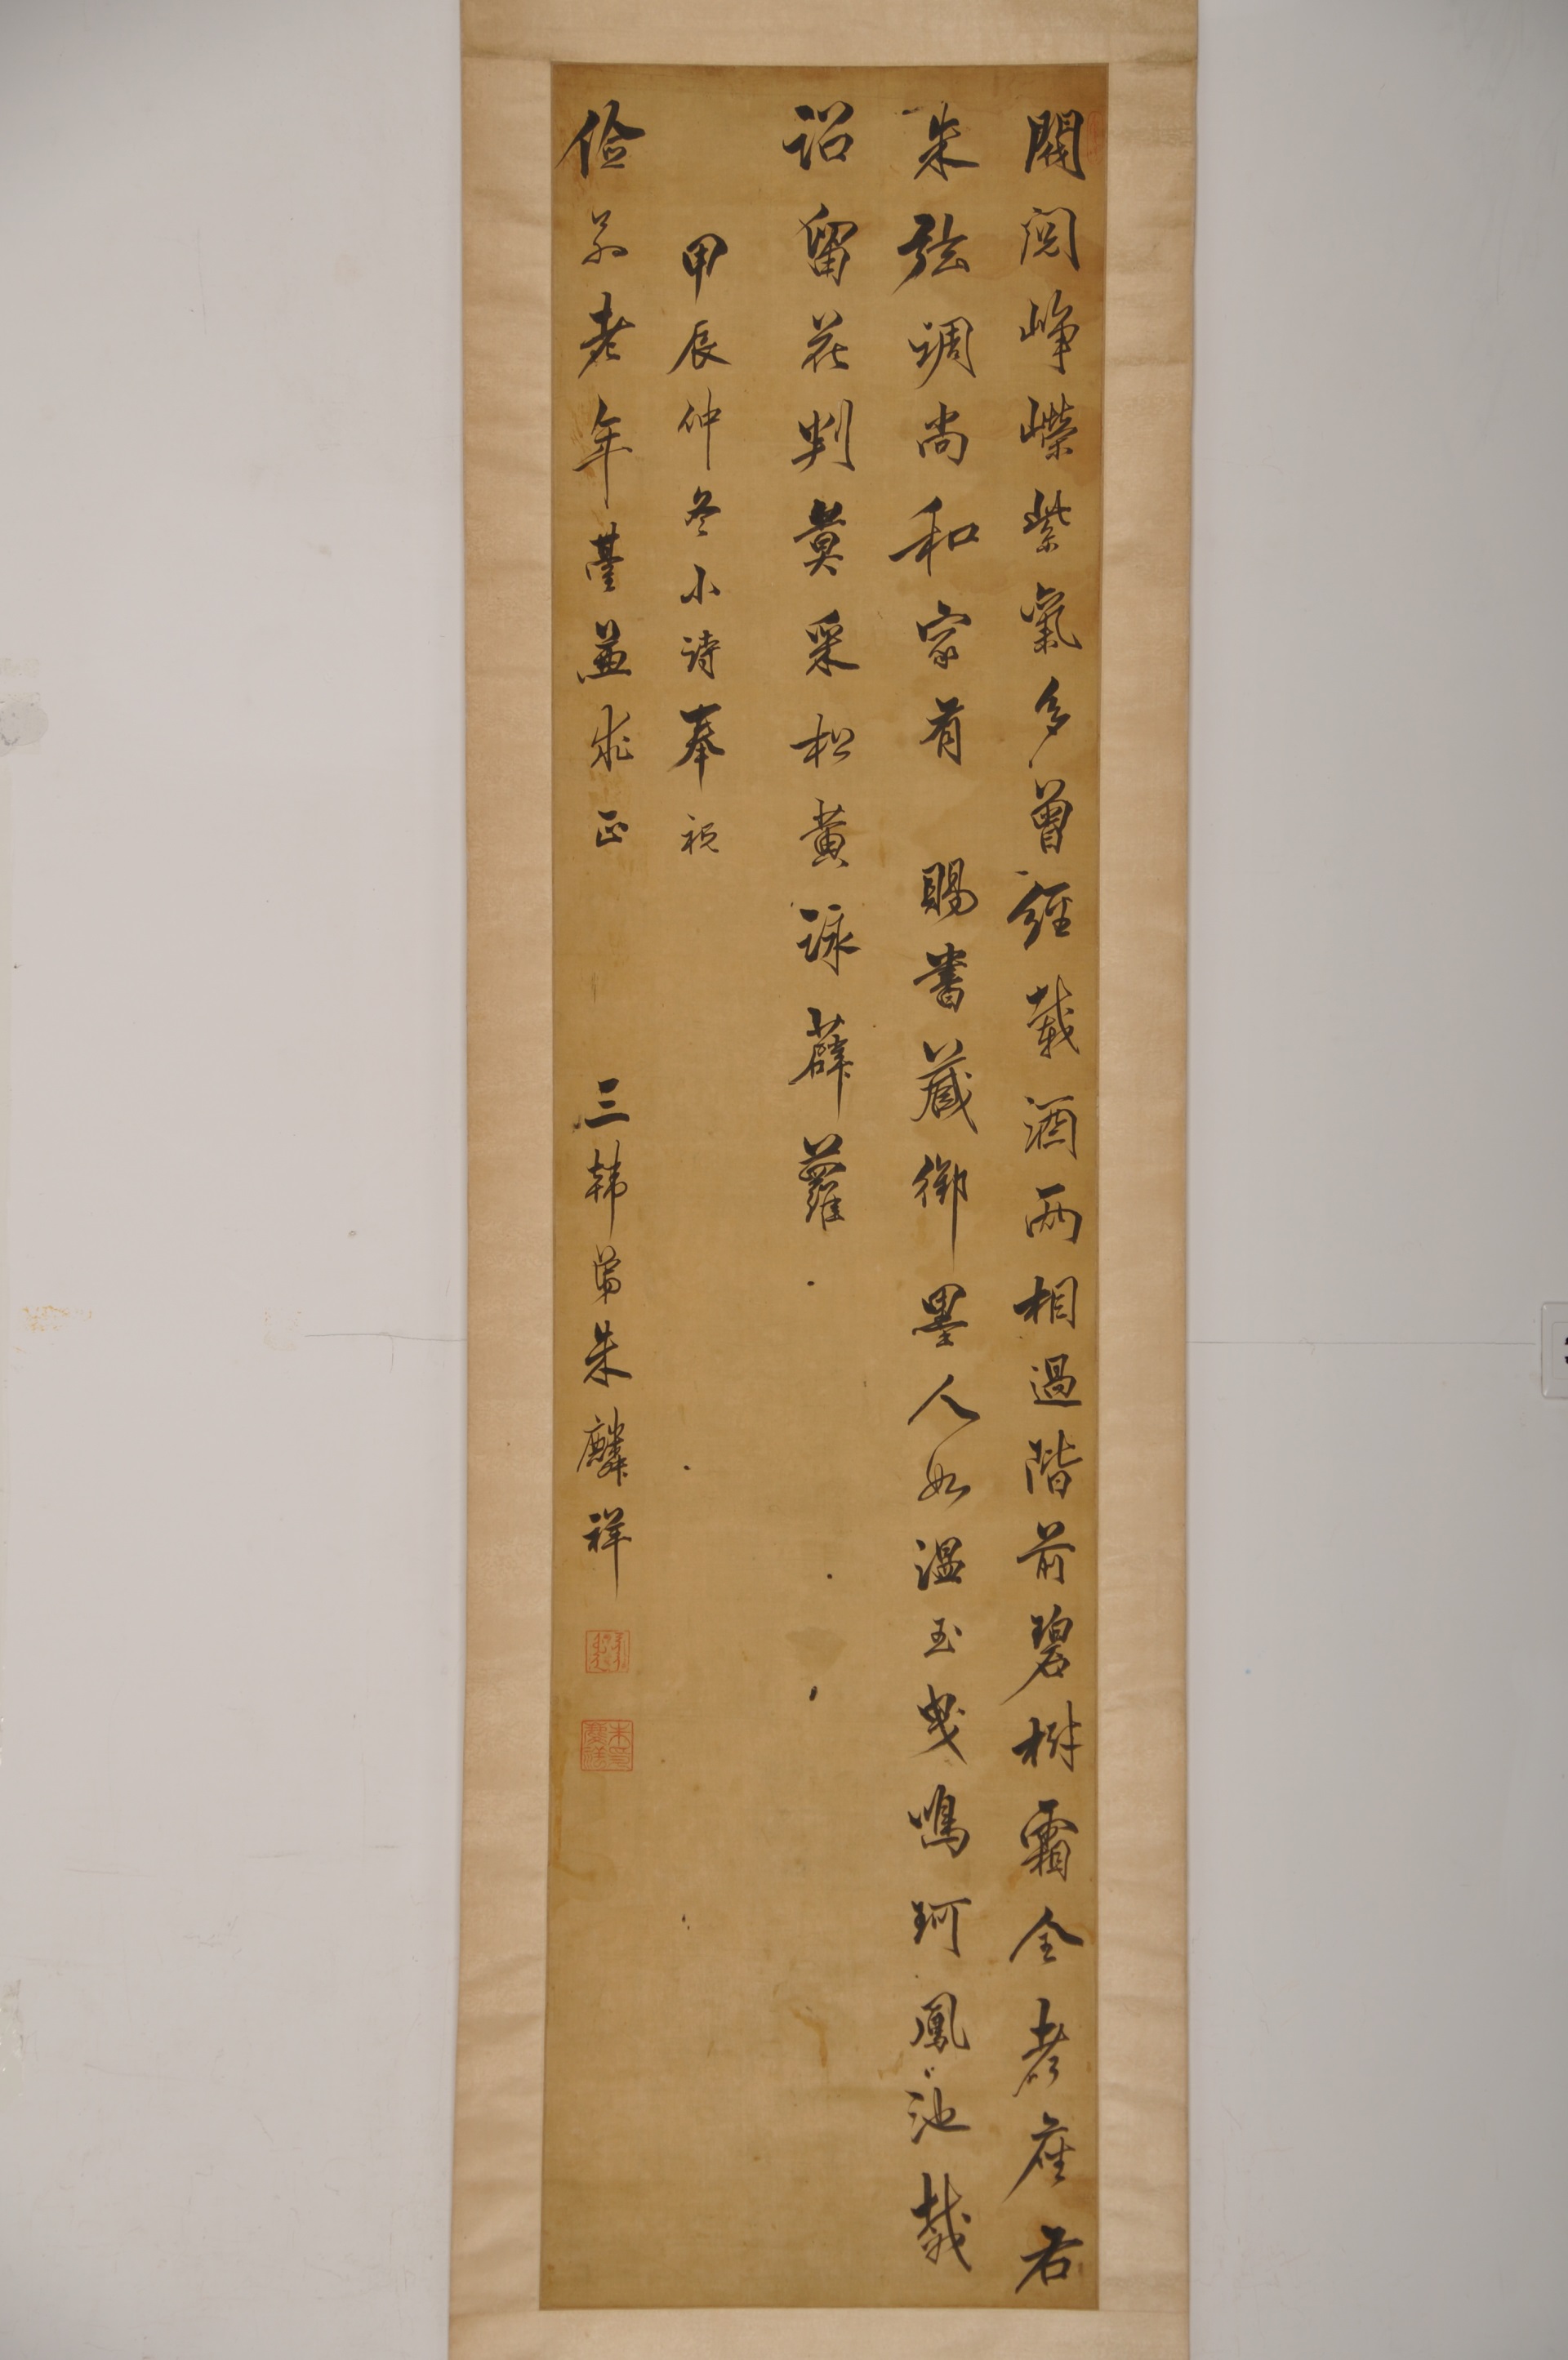 閥閱崢嶸紫氣多曾經載酒兩相過階前碧樹霜全老座右
朱弦調尚和家有 賜書藏御墨人如溫玉曳鳴珂鳳池裁
詔留花判莫采松黃詠薜蘿
甲辰仲冬小詩奉祝
儉翁老年臺並求正 三韓弟朱麟祥
朱印麟祥